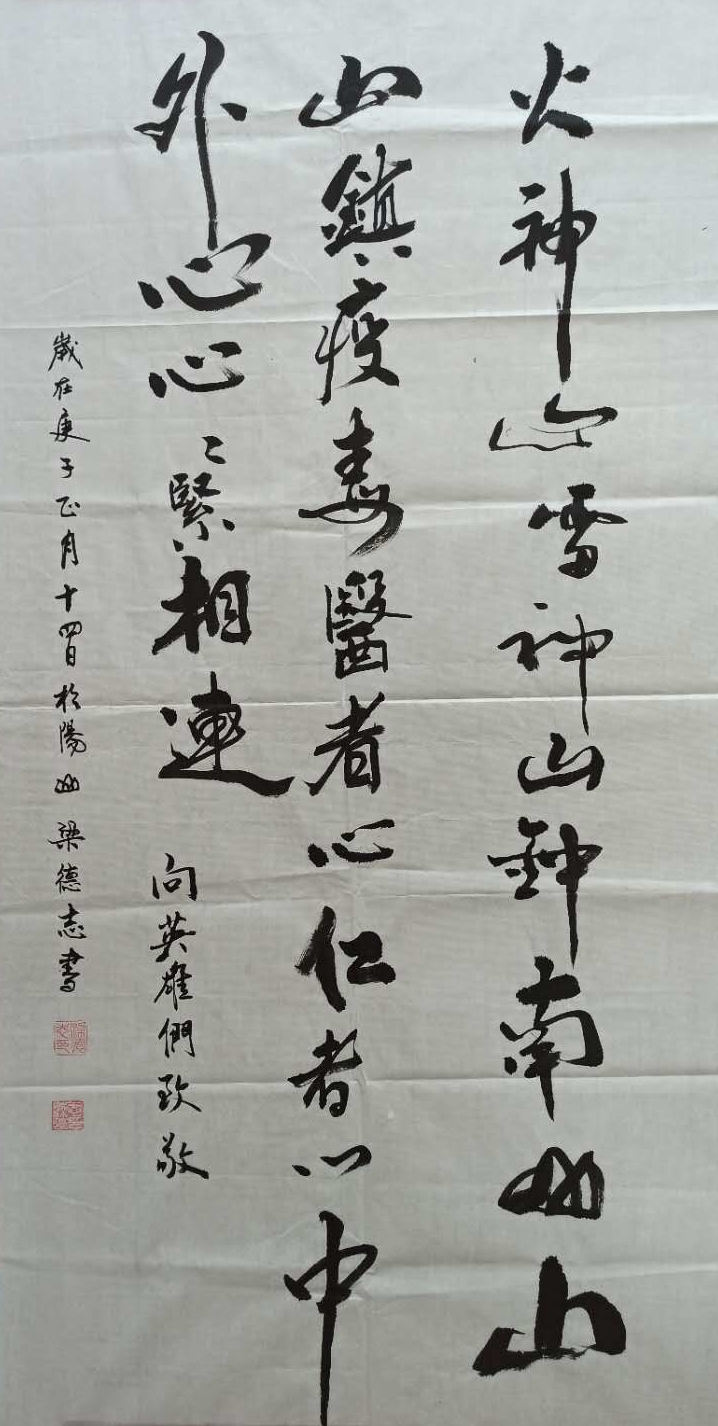 火神山雷神山鈡南山山
山鎮疫毒醫者心仁者心中
外心心々緊相連
向英雄們致敬
歲在庚子正月十四日於陽山梁德志書